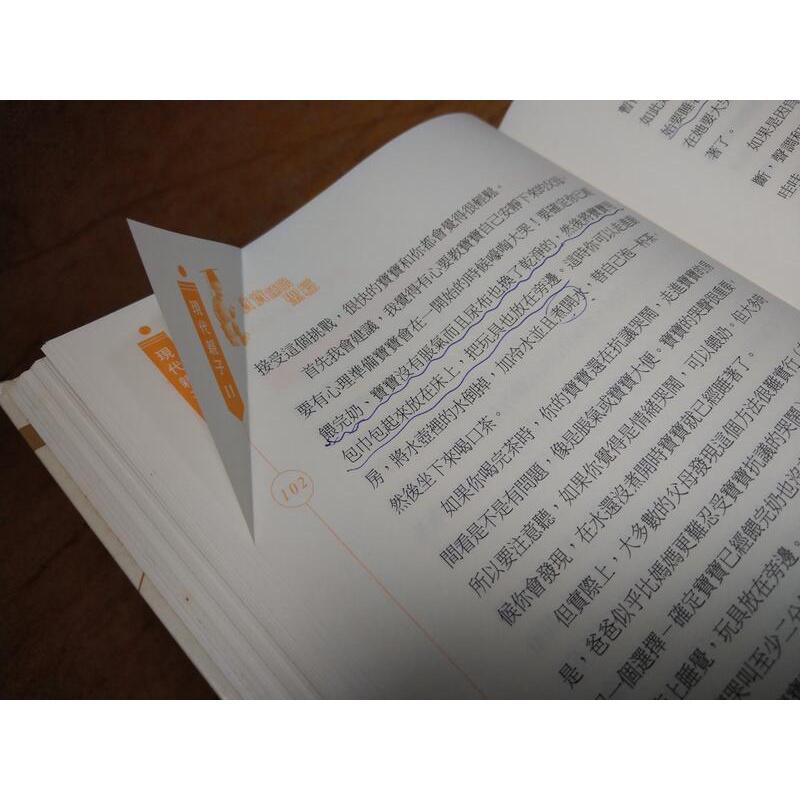 現代親子 II
現代
102
接受這個挑戰,很快的寶寶和你都會覺得很輕鬆。
首先我會建議,我覺得有心要教寶寶自己安靜下來的父母,
要有心理準備寶寶會在一開始的時候嚎啕大哭!要確定你已經
餵完奶、寶寶沒有脹氣而且尿布也換了乾淨的,然後將寶寶用
包巾包起來放在床上,把玩具也放在旁邊。這時你可以走進廚
房,將水壺裡的水倒掉,加冷水並且煮開水,替自己泡一杯茶,
然後坐下來喝口茶。
如果你喝完茶時,你的寶寶還在抗議哭鬧,走進寶寶的房
間看是不是有問題,像是脹氣或寶寶大便。寶寶的哭聲很重要,
所以要注意聽,如果你覺得是情緒哭鬧,可以餵奶。但大多時
候你會發現,在水還沒煮開時寶寶就已經睡著了。
但實際上,大多數的父母發現這個方法很難實行
是,爸爸似乎比媽媽更難忍受寶寶抗議的哭鬧
一個選擇—確定寶寶已經餵完奶也沒
上睡覺,玩具放在旁邊。
哭叫至少二分
如此
始要睡
在她要大哭
著了。
如果是因
斷,聲調和
哇哇